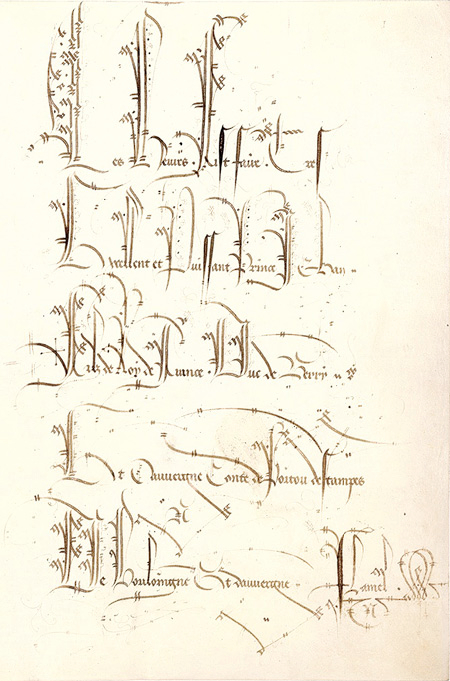 Ces Heures fist faire Tres
Excellent et Puissant Prince Jehan
Filz de Roy de France Duc de Berry
Et Dauvergne Conte de Poitou destampes
N
De Bouloingne Et dauvergne Flamel
N